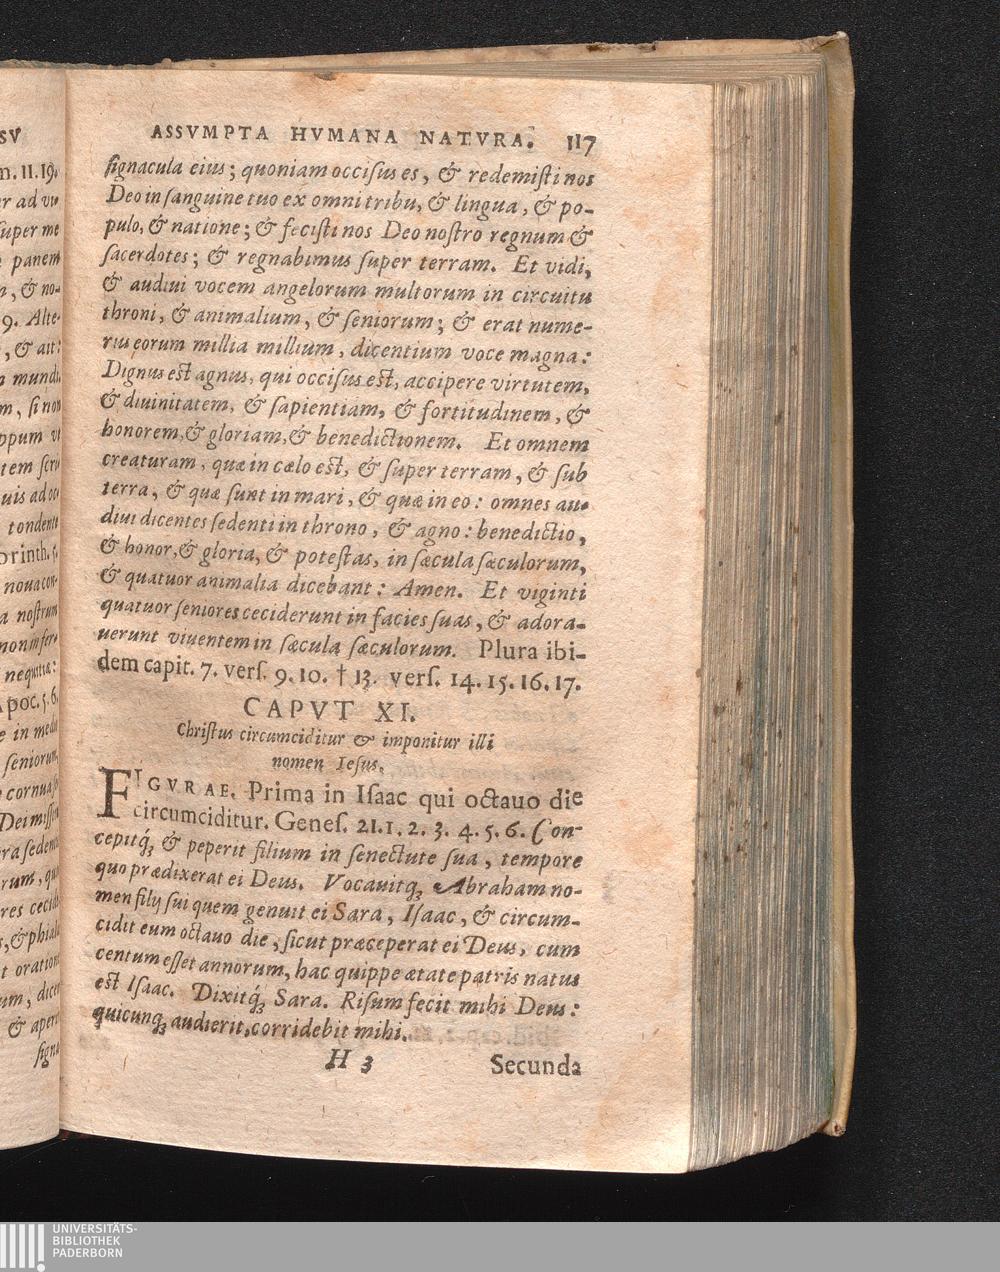 SV
m. 11. 19.
r ad vi-
super me
panem
n, & no-
9. Alte-
, & ait:
mundi.
m, si non
ppum vt
tem scri-
uis ad oc-
tondente
orinth. 5.
noua con-
a nostrum
non in fer-
nequitiæ:
Apoc. 5. 6.
e in medio
seniorum,
cornua se-
Dei missi
ra sedent
rum, qui
res cecide
s, & phial
t oration
um, dicen
& aperi
signa
ASSVMPTA HVMANA NATVRA. 117
signacula eius; quoniam occisus es, & redemisti nos
Deo in sanguine tuo ex omni tribu, & lingua, & po-
pulo, & natione; & fecisti nos Deo nostro regnum &
sacerdotes; & regnabimus super terram. Et vidi,
& audiui vocem angelorum multorum in circuitu
throni, & animalium, & seniorum; & erat nume-
rus eorum millia millium, dicentium voce magna:
Dignus est agnus, qui occisus est, accipere virtutem,
& diuinitatem, & sapientiam, & fortitudinem, &
honorem, & gloriam, & benedictionem. Et omnem
creaturam, quæ in cœlo est, & super terram, & sub
terra, & quæ sunt in mari, & quæ in eo: omnes au-
diui dicentes sedenti in throno, & agno: benedictio,
& honor, & gloria, & potestas, in sæcula sæculorum,
& quatuor animalia dicebant: Amen. Et viginti
quatuor seniores ceciderunt in facies suas, & adora-
uerunt viuentem in sæcula sæculorum. Plura ibi-
dem capit. 7. vers. 9. 10. † 13. vers. 14. 15. 16. 17.
CAPVT XI.
Christus circumciditur & imponitur illi
nomen Iesus.
FIGVRAE. Prima in Isaac qui octauo die
circumciditur. Genes. 21. 1. 2. 3. 4. 5. 6. Con-
cepitq́; & peperit filium in senectute sua, tempore
quo prædixerat ei Deus. Vocauitq; Abraham no-
men filij sui quem genuit ei Sara, Isaac, & circum-
cidit eum octauo die, sicut præceperat ei Deus, cum
centum esset annorum, hac quippe ætate patris natus
est Isaac. Dixitq́; Sara. Risum fecit mihi Deus:
quicunq; audierit, corridebit mihi.
H 3 Secunda
UNIVERSITÄTS-
BIBLIOTHEK
PADERBORN